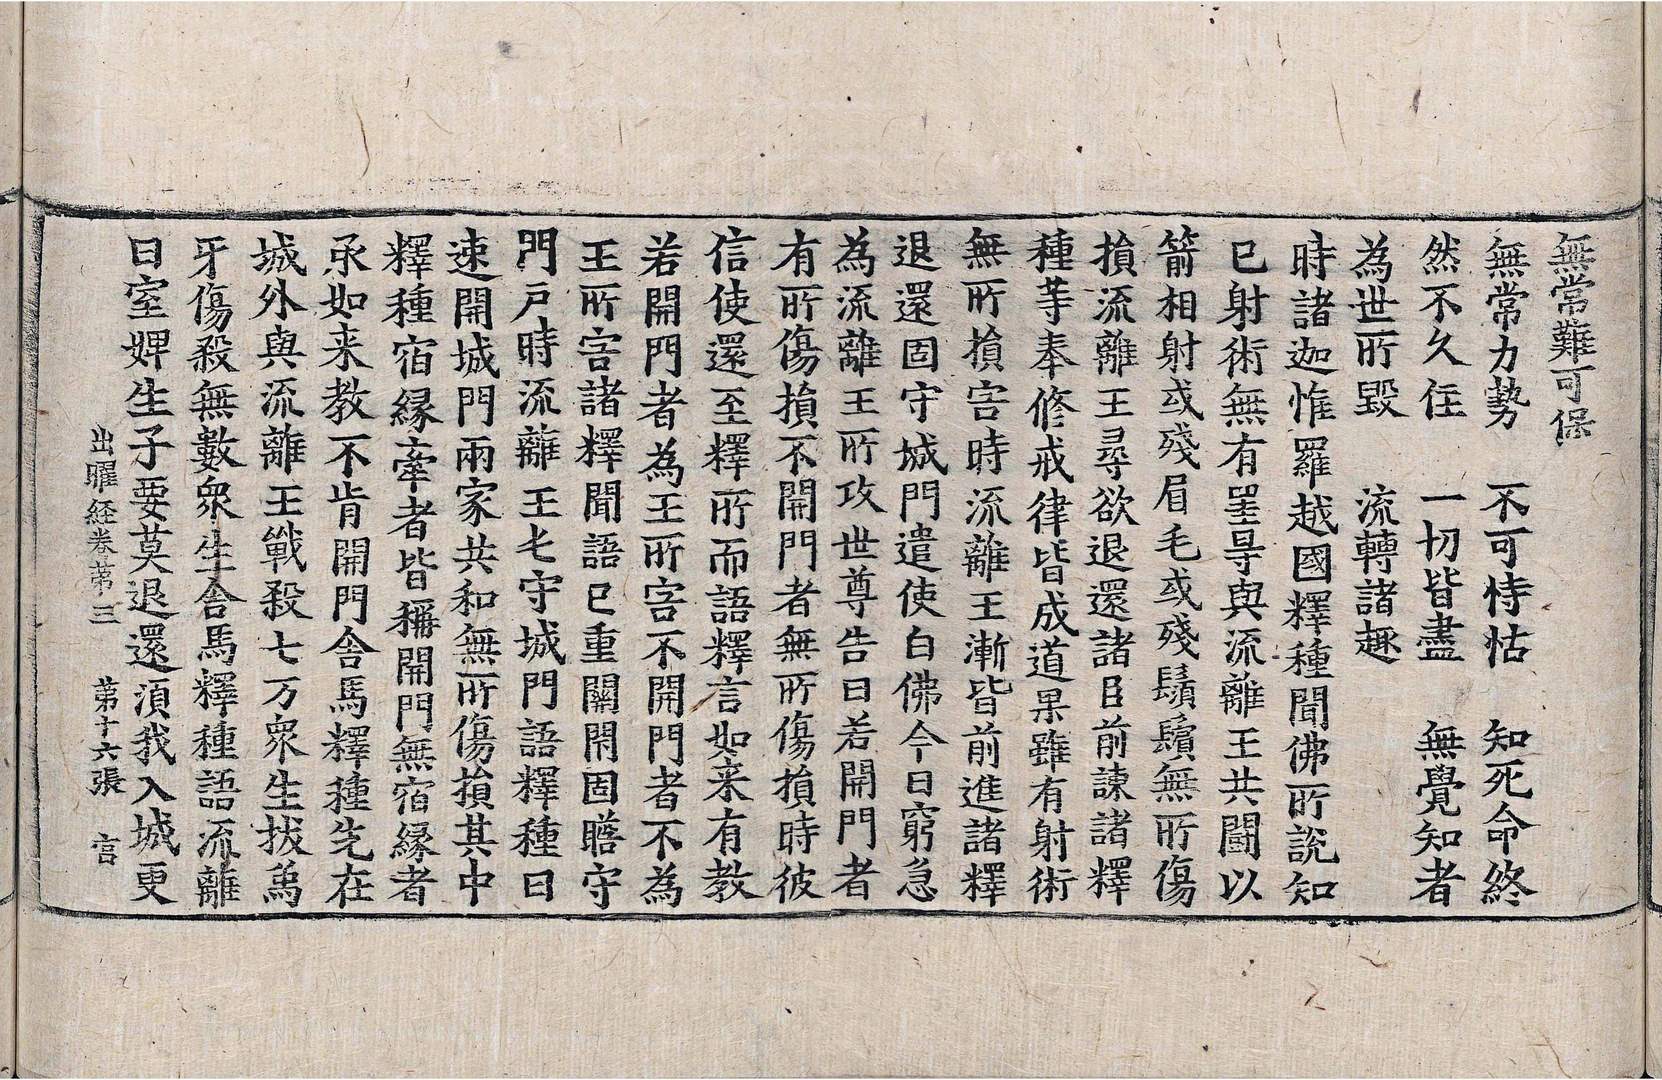 無常難可保
無常力勢　不可恃怙　知死命終
然不久住　一切皆盡　無覺知者
為世所毀　流轉諸趣
時諸迦惟羅越國釋種聞佛所說知
已射術無有罣㝵與流離王共鬪以
箭相射或殘眉毛或殘鬚鬢無所傷
損流離王尋欲退還諸臣前諫諸釋
種等奉修戒律皆成道果雖有射術
無所損害時流離王漸皆前進諸釋
退還固守城門遣使白佛今日窮急
為流離王所攻世尊告曰若開門者
有所傷損不開門者無所傷損時彼
信使還至釋所而語釋言如来有教
若開門者為王所害不開門者不為
王所害諸釋聞語已重關閉固瞻守
門戶時流離王圡守城門語釋種曰
速開城門兩家共和無所傷損其中
釋種宿緣牽者皆稱開門無宿緣者
承如来教不肯開門舍馬釋種先在
城外與流離王戰殺七万衆生拔為
牙傷殺無數衆生舍馬釋種語流離
曰室婢生子要莫退還須我入城更
出曜経卷苐三　苐十六張　宫